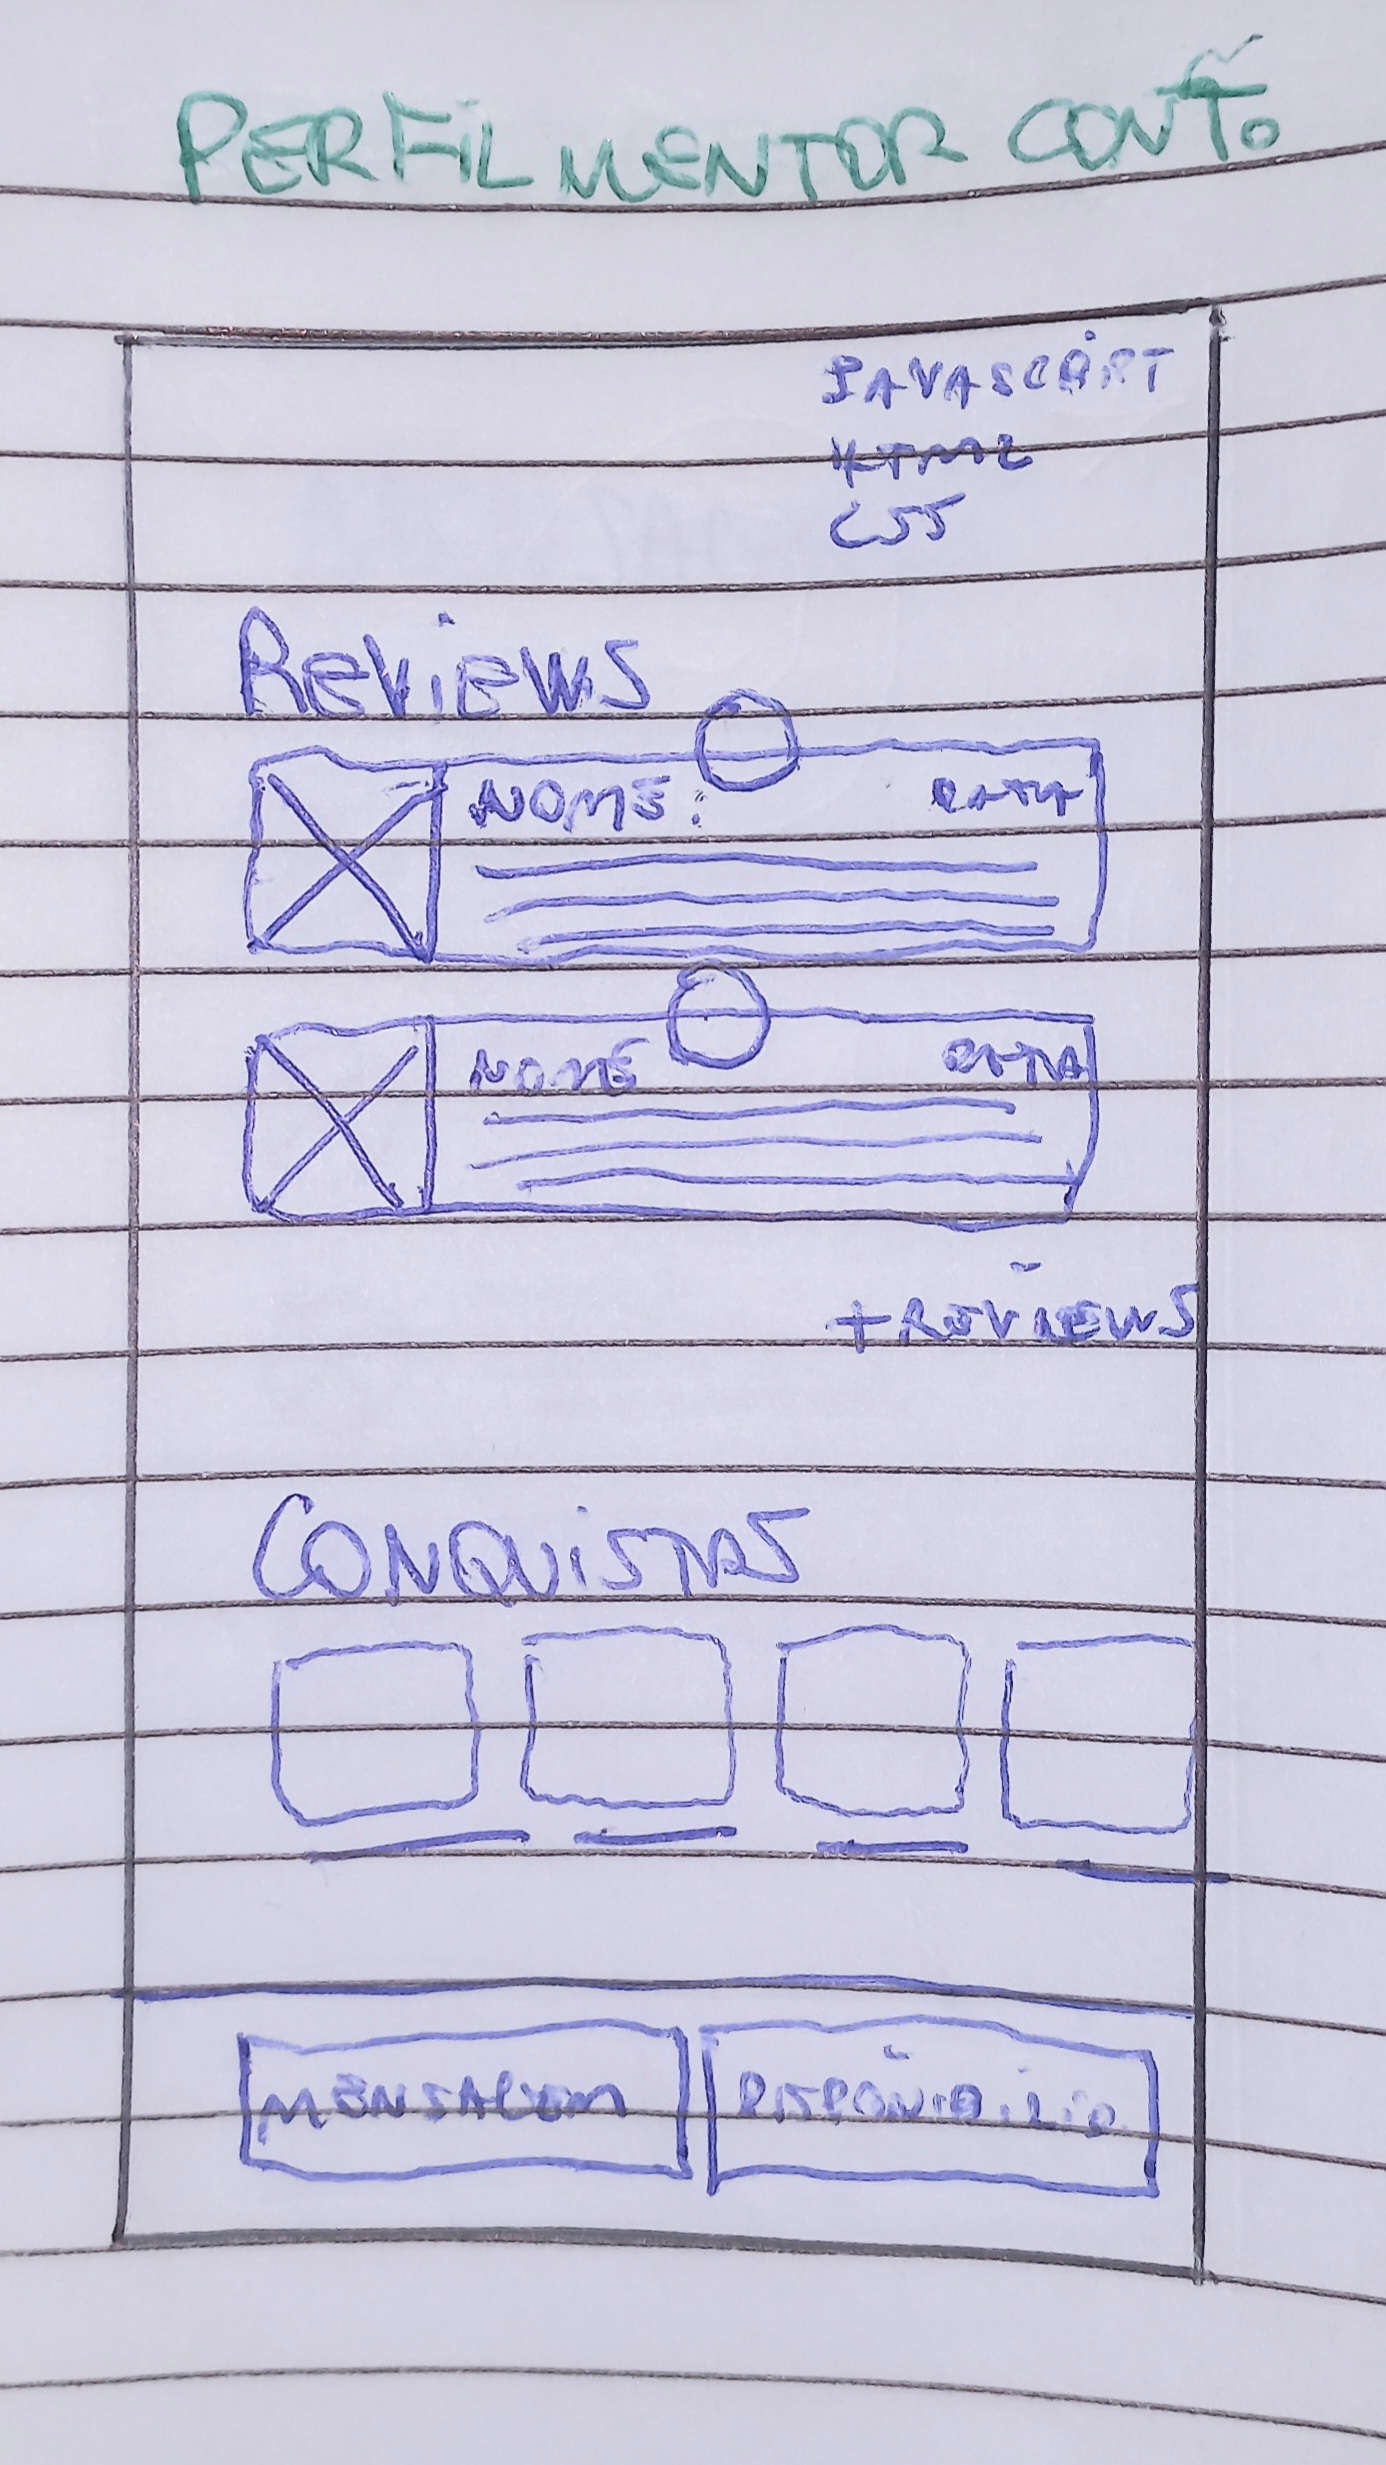 PERFIL MENTOR CONT.
JAVASCRIPT
HTML
CSS
Reviews
NOME: DATA
NOME DATA
+ REVIEWS
CONQUISTAS
MENSAGEM DISPONIBILID